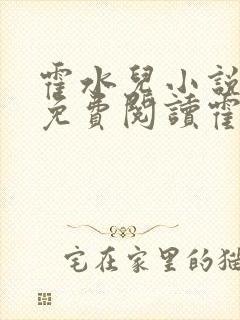 霍水兒小說
免費閱讀霍
宅在家里的猫